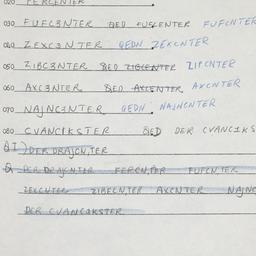 020 FERCENTER
030 FUFC3NTER QED FUFCENTER FUFCNTER
040 ZEXC3NTER QEDN ZEXCNTER
050 ZIBC3NTER QED ZIBCENTER ZIPCNTER
060 AXC3NTER QED AXCENTER AXCNTER
070 NAJNCENTER QEDN NAJNCNTER
080 CVANCIKSTER QED DER CVANCIKS
QI) DER DRAJCN,TER
Q DER DRAJCNTER FERCN,TER FUFCN,TER
ZEXCNTER ZIBFCN,TER AXCNTER NAJNC
DER CVANCIKSTER